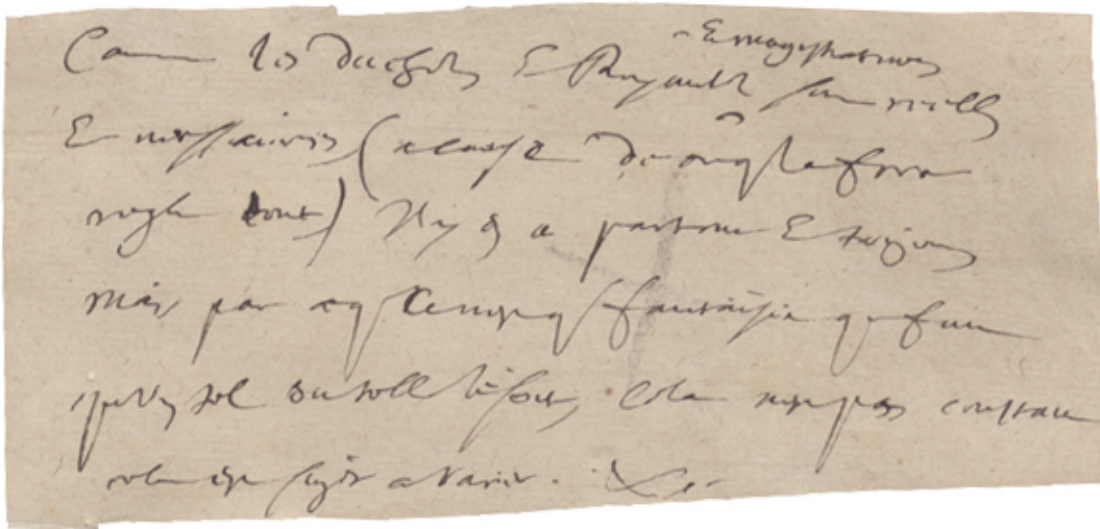 & magistratures
Comme les duchez & Royautez sont reelles
& necessaires (a cause de ce que la force
regle tout) Il y en a partout & toujours
mais parce que ce n'est que fantaisie qui fait
qu'un tel ou telle le soit, cela n'est pas constant
cela est sujet a varier. &c.